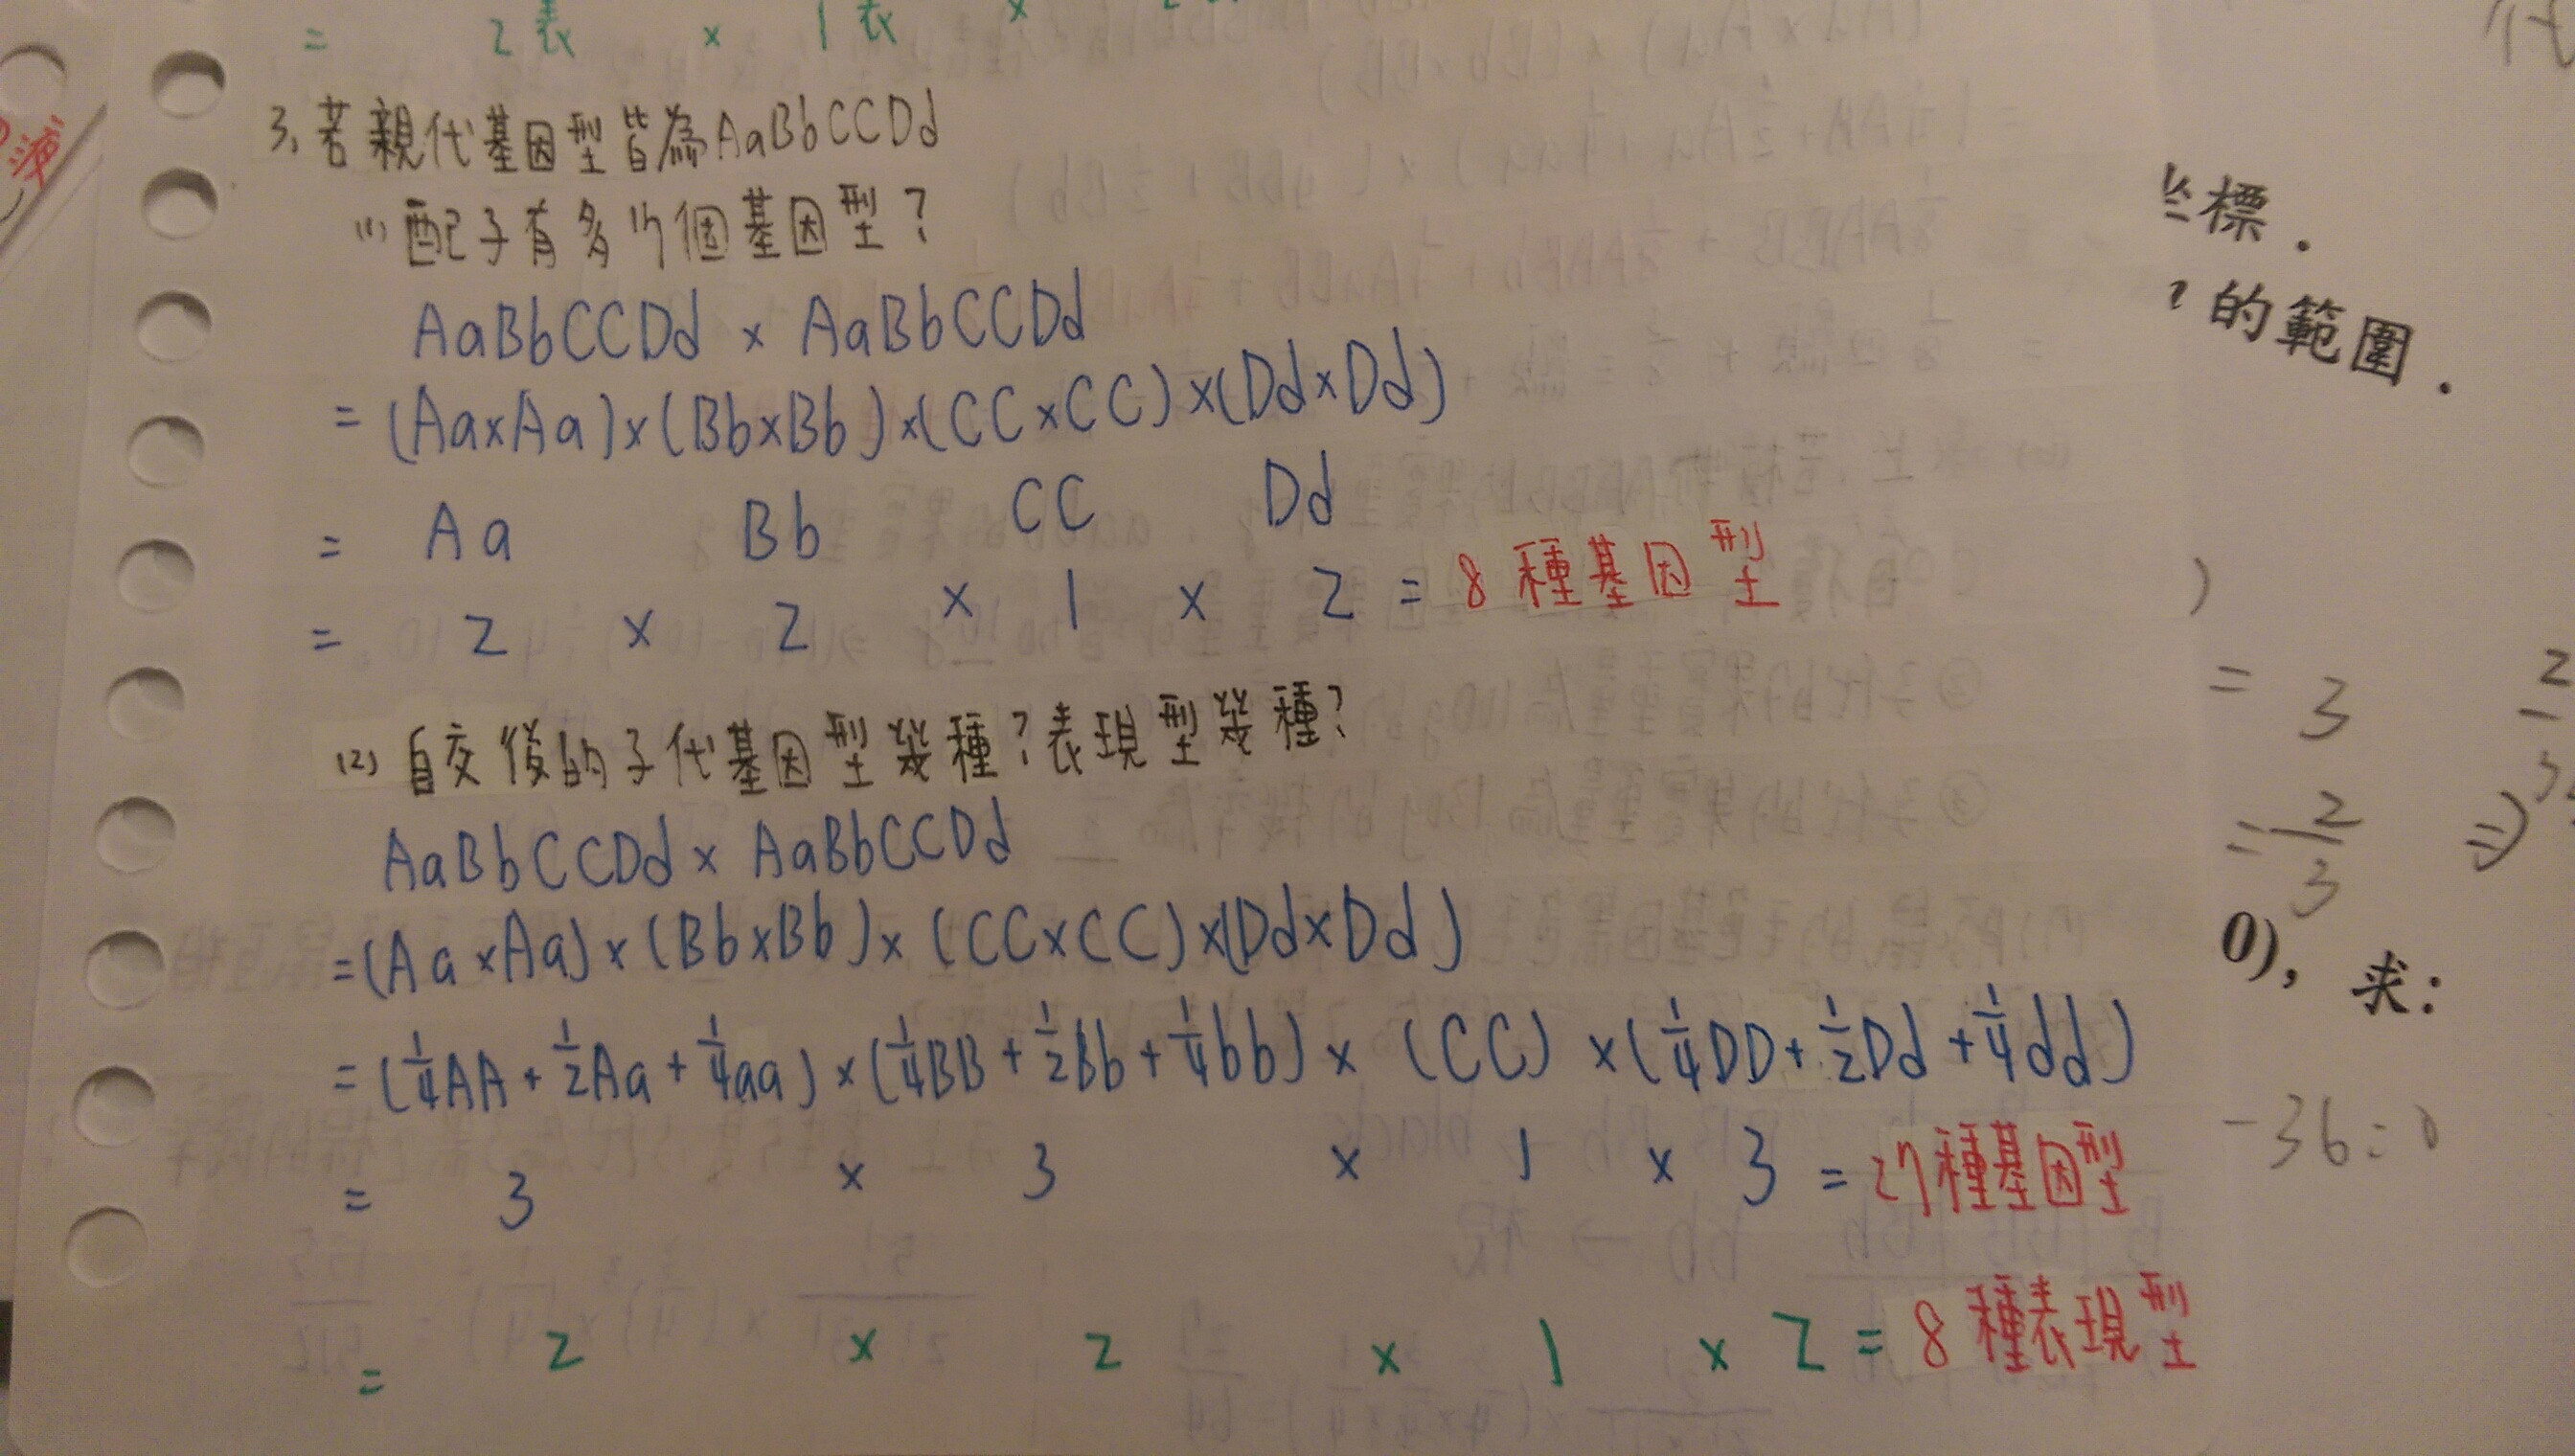 = 2表 × 1表 ×
3. 若親代基因型皆為AaBbCCDd
(1) 配子有多少個基因型?
AaBbCCDd × AaBbCCDd
= (Aa×Aa)×(Bb×Bb)×(CC×CC)×(Dd×Dd)
= Aa Bb CC Dd
= 2 × 2 × 1 × 2 = 8 種基因型
(2) 自交後的子代基因型幾種?表現型幾種?
AaBbCCDd × AaBbCCDd
=(Aa×Aa)×(Bb×Bb)×(CC×CC)×(Dd×Dd)
= (1/4AA + 1/2Aa + 1/4aa) × (1/4BB + 1/2Bb + 1/4bb) × (CC) × (1/4DD + 1/2Dd + 1/4dd)
= 3 × 3 × 1 × 3 = 27種基因型
= 2 × 2 × 1 × 2 = 8 種表現型
標.
的範圍.
)
= 3
= 2/3 ⇒
0), 求:
-36=0